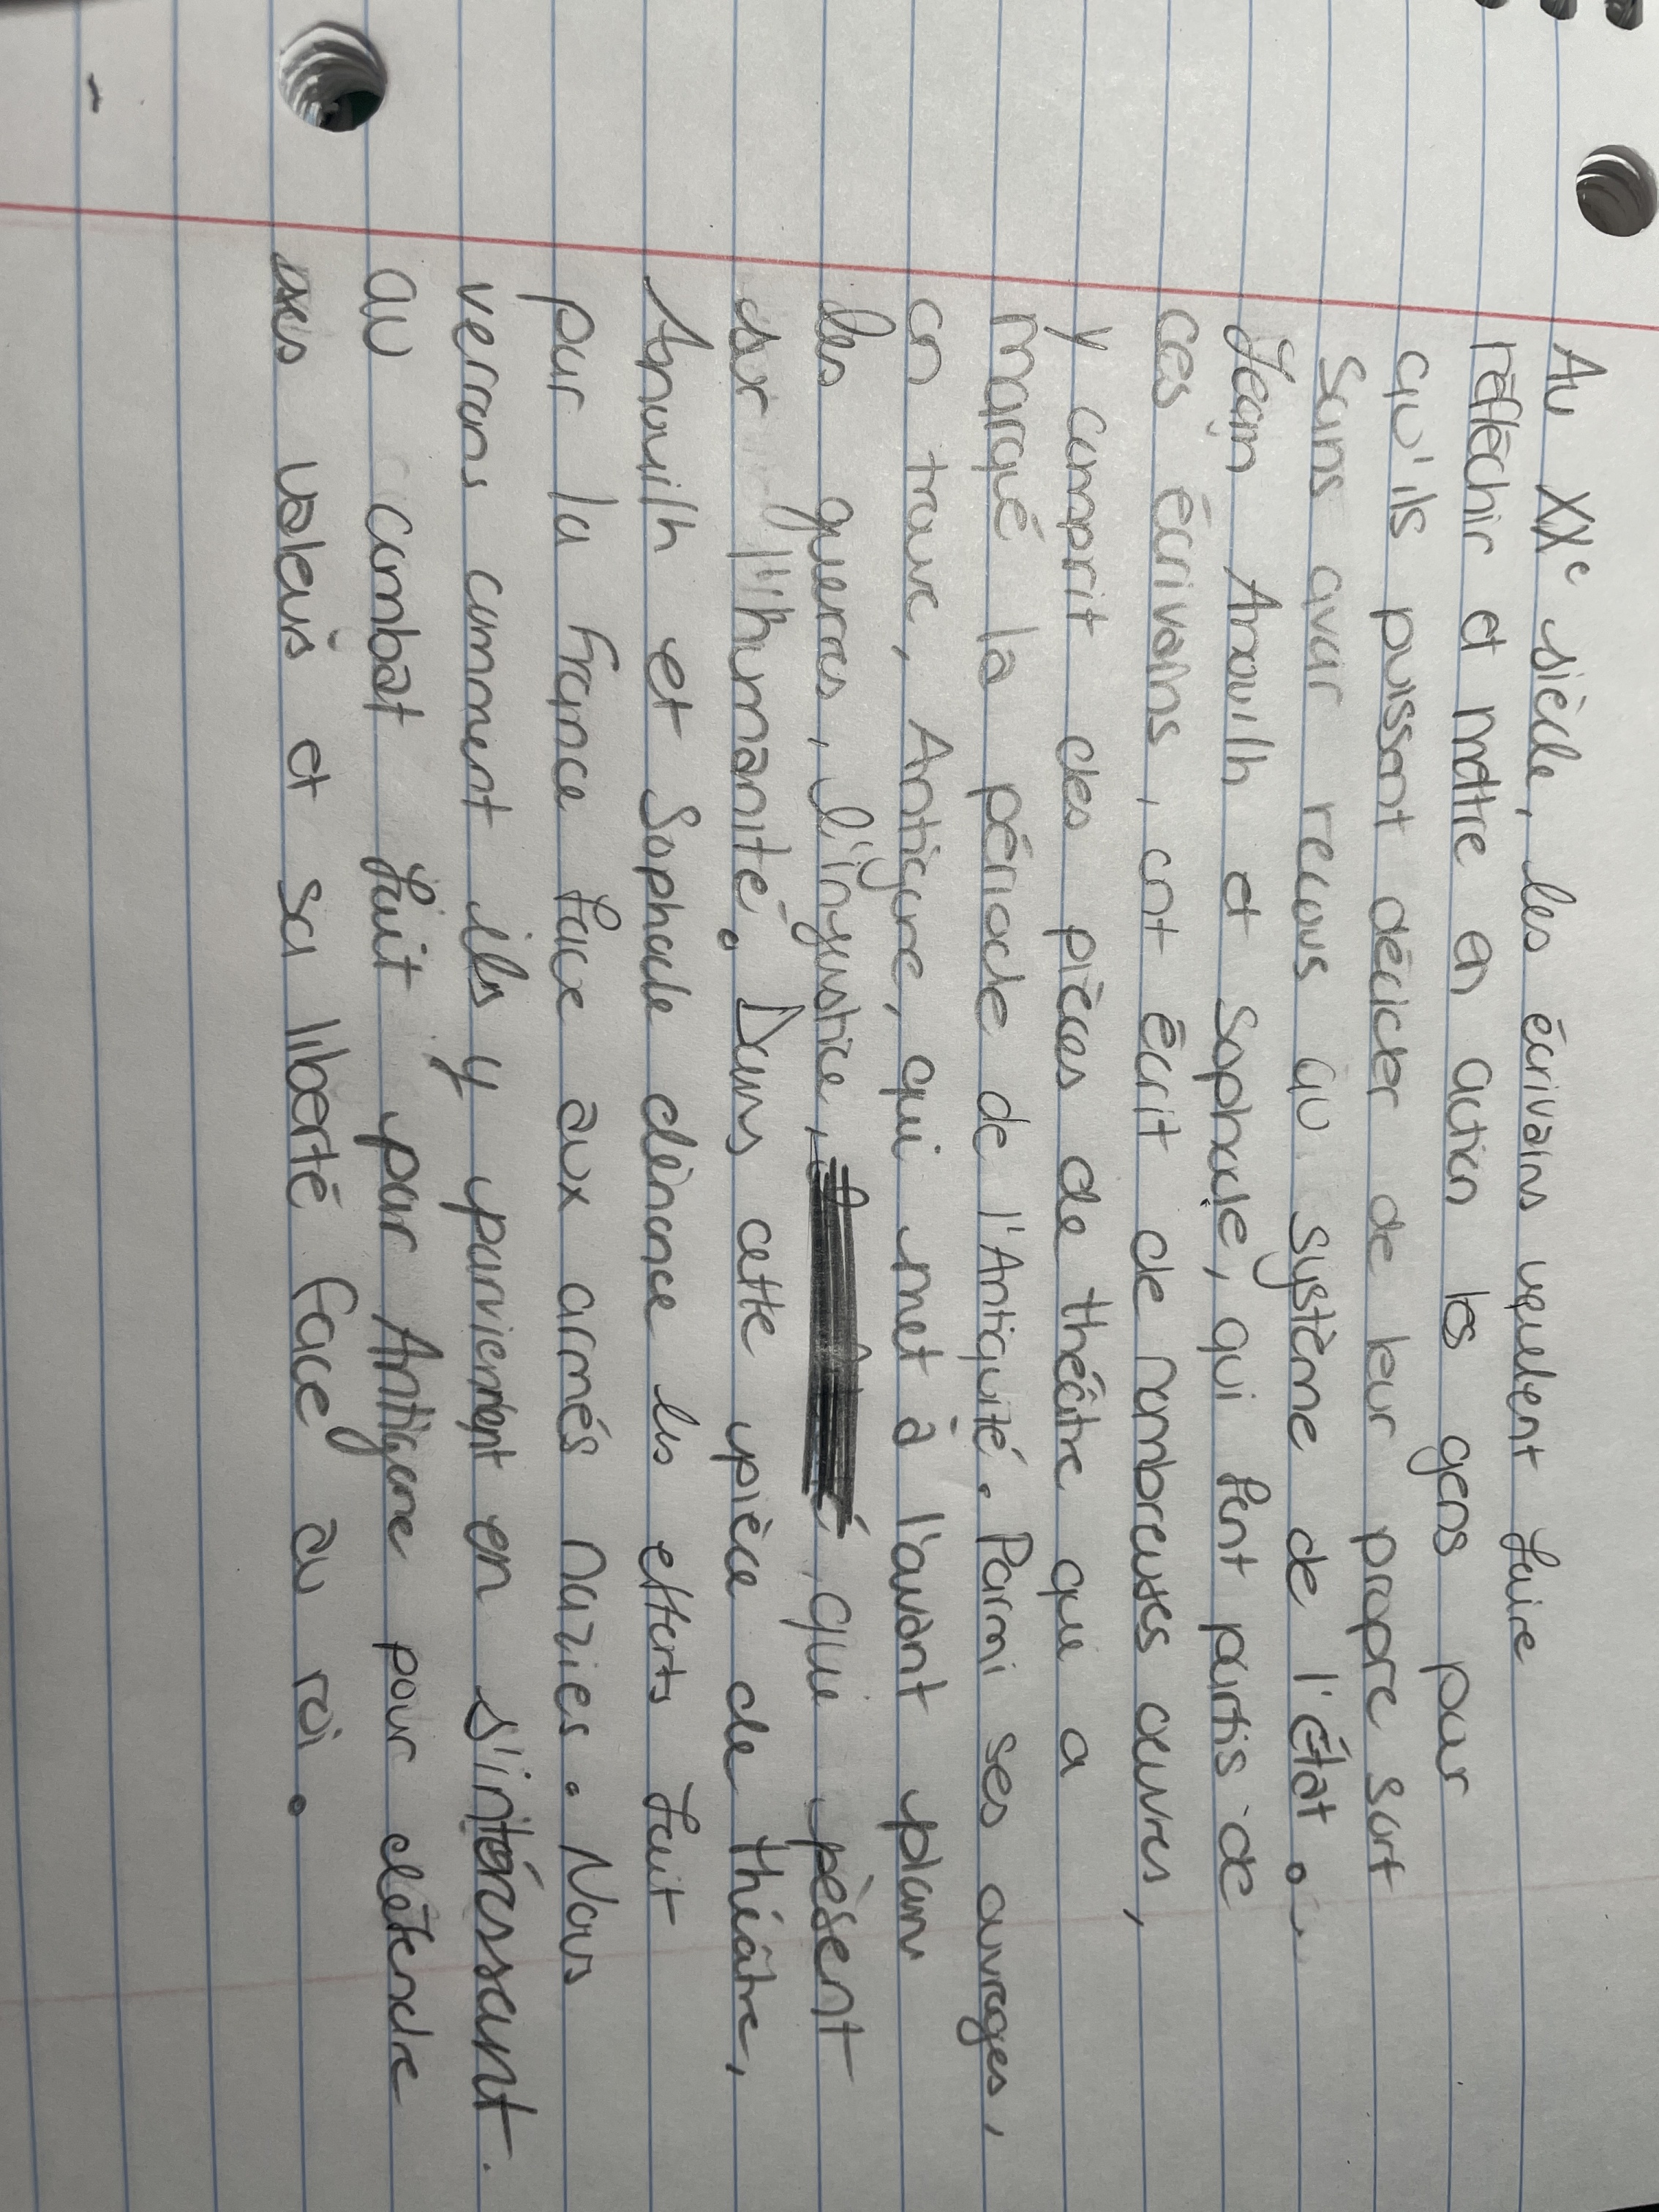 Au XXe siècle, les écrivains veulent faire
réfléchir et mettre en action les gens pour
qu'ils puissent décider de leur propre sort
sans avoir recours au système de l'État.
Jean Anouilh et Sophocle, qui font partis de
ces écrivains, ont écrit de nombreuses œuvres,
y comprit des pièces de théâtre que a
marqué la période de l'Antiquité. Parmi ses ouvrages,
on trouve, Antigone, qui met à l'avant plan
les guerres, l'injustice, que pèsent
sur l'humanité. Dans cette pièce de théâtre,
Anouilh et Sophocle dénonce les efforts fait
pour la France face aux armés nazies. Nous
verrons comment ils y parviennent en s'intéressant
au combat fait par Antigone pour défendre
ses valeurs et sa liberté face au roi.